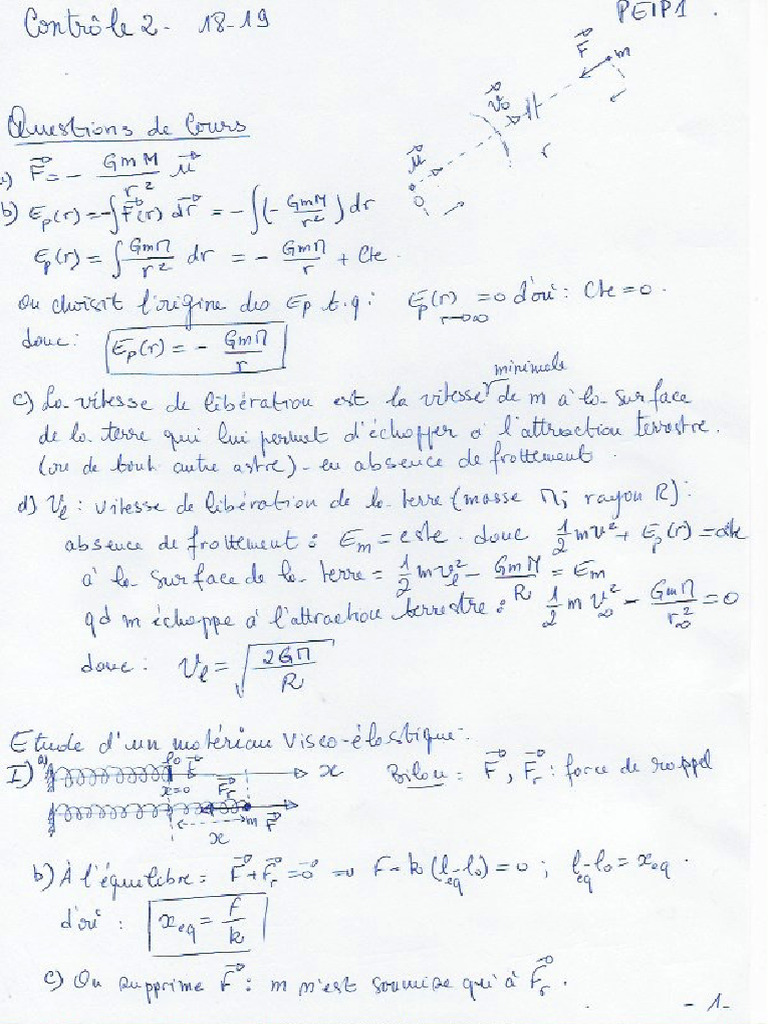 Contrôle 2 - 18-19
PEIP1.
F m
v₀
r
u
O
Questions de Cours
a) F = - GmM/r² u
b) Ep(r) = -∫F(r) dr = -∫(-GmM/r²) dr
Ep(r) = ∫GmM/r² dr = - GmM/r + Cte.
On choisit l'origine des Ep t.q: Ep(r) = 0 d'où: Cte = 0.
r→∞
donc: Ep(r) = - GmM/r
minimale
c) La vitesse de libération est la vitesse de m à la surface
de la terre qui lui permet d'échapper à l'attraction terrestre.
(ou de tout autre astre) - en absence de frottement.
d) Vl: vitesse de libération de la terre (masse M; rayon R):
absence de frottement: Em = cste. donc 1/2 mv² + Ep(r) = cste
à la surface de la terre = 1/2 mvl² - GmM/R = Em
qd m échappe à l'attraction terrestre: 1/2 m v∞² - GmM/r∞² = 0
donc: Vl = √(2GM/R)
Etude d'un matériau visco-élastique.
I) a) l₀ x Bilan: F, Fr: force de rappel
x=0 Fr
m F
x
b) À l'équilibre: F + Fr = 0 ⇒ F - k(leq - l₀) = 0; leq - l₀ = xeq.
d'où: xeq = F/k
c) On supprime F: m n'est soumise qu'à Fr.
- 1 -